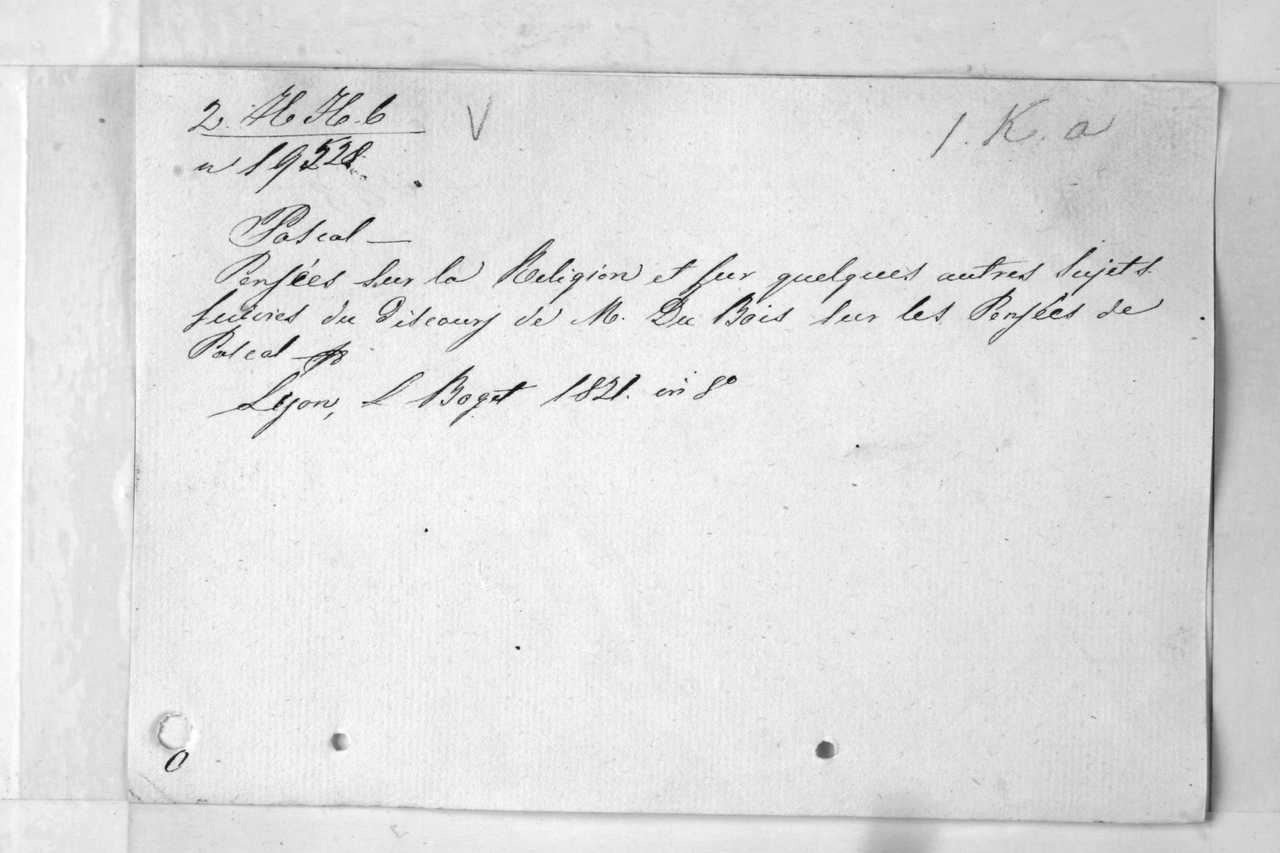 2. H H. 6 V 1. K. a
n 19528
Pascal —
Pensées sur la Religion et sur quelques autres sujets.
suivies du discours de M. Du Bois sur les Pensées de
Pascal —
Lyon, L Boget 1821. in 8°
0